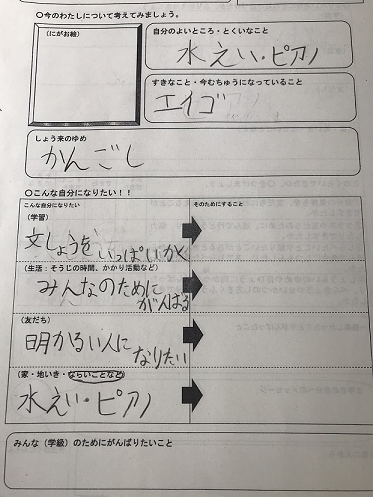 ○今のわたしについて考えてみましょう。
(にがお絵)
自分のよいところ・とくいなこと
水えい・ピアノ
すきなこと・今むちゅうになっていること
エイゴ
しょう来のゆめ
かんごし
○こんな自分になりたい！！
こんな自分になりたい
そのためにすること
(学習)
文しょうを いっぱいかく
(生活：そうじの時間、かかり活動など)
みんなのために
がんばる
(友だち)
明かるい人に
なりたい
(家・地いき・ならいごとなど)
水えい・ピアノ
みんな（学級）のためにがんばりたいこと